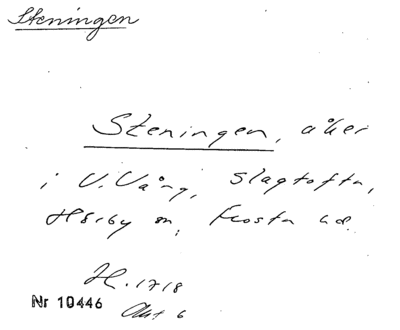 Steningen
Steningen, åker
i V. Vång, Slagtofta,
Hörby sn, Frosta hd.
H. 1718
Nr 10446 Akt 6